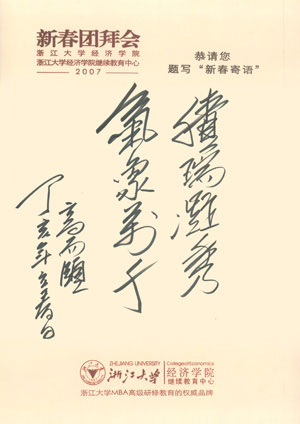 新春团拜会
浙江大学经济学院
浙江大学经济学院继续教育中心
2007
恭请您
题写“新春寄语”
瑞凝秀
氣象萬千
高而頤
丁亥年立春日
ZHEJIANG UNIVERSITY
浙江大学
College of Economics
经济学院
继续教育中心
浙江大学MBA高级研修教育的权威品牌